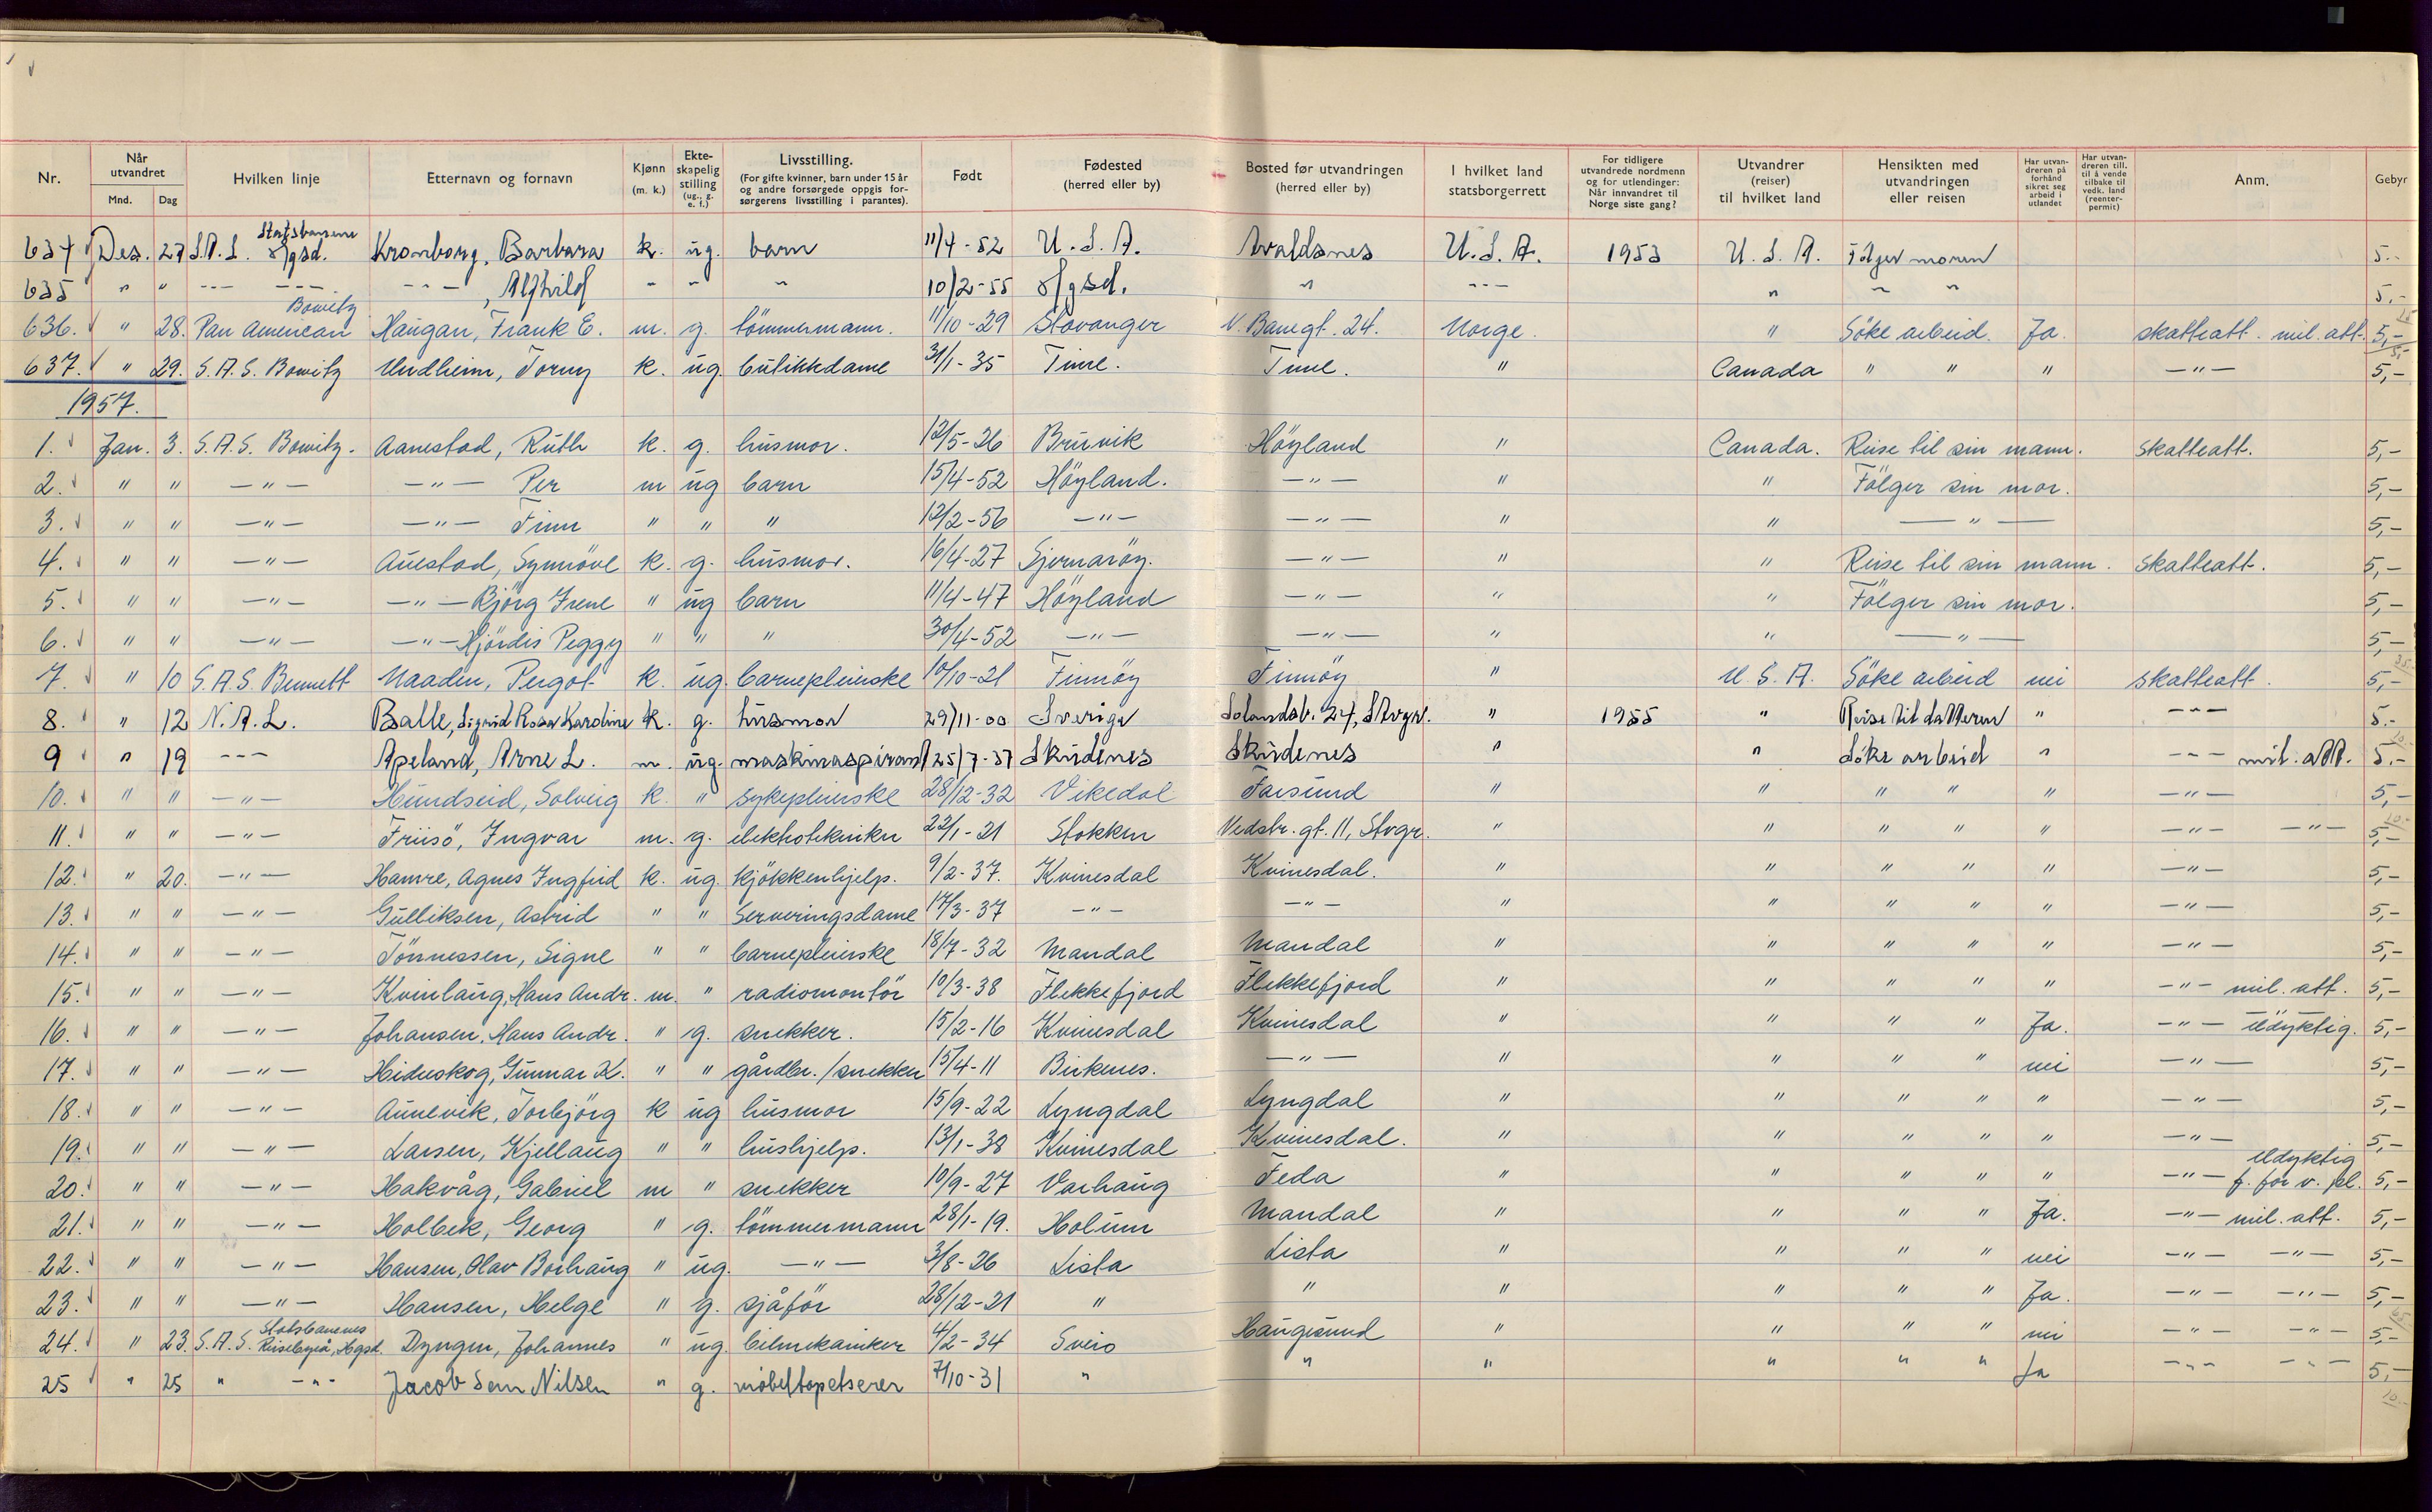 Nr. | Når utvandret Mnd. Dag | Hvilken linje | Etternavn og fornavn | Kjønn (m. k.) | Ekte-skapelig stilling (ug., g. e. f.) | Livsstilling. (For gifte kvinner, barn under 15 år og andre forsørgede oppgis for-sørgerens livsstilling i parantes). | Født | Fødested (herred eller by) | Bosted før utvandringen (herred eller by) | I hvilket land statsborgerrett | For tidligere utvandrede nordmenn og for utlendinger: Når innvandret til Norge siste gang? | Utvandrer (reiser) til hvilket land | Hensikten med utvandringen eller reisen | Har utvan-dreren på forhånd sikret seg arbeid i utlandet | Har utvan-dreren till. til å vende tilbake til vedk. land (reenter-permit) | Anm. | Gebyr
634 Des. 27 S.A.S. Statsbanene Hgsd. Kronborg, Barbara k. ug. barn 11/4-52 U.S.A. Avaldsnes U.S.A. 1953 U.S.A. Følger moren 5.-
635 " " -"- -"- , Alfhild " " " 10/2-55 Hgsd. " -"- " " " 5.-
636. " 28. Pan American Bowitz Haugan, Frank E. m. g. tömmermann. 11/10-29 Stavanger N. Banegt. 24. Norge. " Söke arbeid. Ja. skatteatt. mil. att. 5,-
637. " 29. S.A.S. Bowitz Undheim, Torny k. ug. butikkdame 31/1-35 Time. Time. " Canada " " " -"- 5,-
1957.
1. Jan. 3. S.A.S. Bowitz. Aanestad, Ruth k. g. husmor. 12/5-26 Bruvik Höyland " Canada. Reise til sin mann. skatteatt. 5,-
2. " " -"- -"- Per m ug barn 15/4-52 Höyland. -"- " " Fölger sin mor. 5,-
3. " " -"- -"- Finn " " " 12/2-56 -"- -"- " " -"- 5,-
4. " " -"- Auestad, Synnöve k. g. husmor. 16/4-27 Sjernaröy. -"- " " Reise til sin mann. skatteatt. 5,-
5. " " -"- -"- Björg Irene " ug barn 11/4-47 Höyland -"- " " Fölger sin mor. 5,-
6. " " -"- -"- Hjördis Peggy " " " 30/4-52 -"- -"- " " -"- 5,-
7. " 10 S.A.S. Bennett Naaden, Pergot k. ug. barnepleierske 10/10-21 Finnöy Finnöy " U.S.A. Söke arbeid nei skatteatt. 5,-
8. " 12 N.A.L. Balle, Sigrid Rosa Karoline k. g. husmor 29/11-00 Sverige Solandsb. 24, Stvgr. " 1955 " Reise til datteren " -"- 5.-
9 " 19 -"- Apeland, Arne L. m. ug. maskinaspirant 25/7-37 Skudenes Skudenes " " Söke arbeid " -"- mil. att. 5.-
10. " " -"- Hundseid, Solveig k. " sykepleierske 28/12-32 Vikedal Farsund " " " " " -"- 5,-
11. " " -"- Friisö, Ingvar m. g. elektrotekniker 22/1-21 Stokken Vedsbr. gt. 11, Stvgr. " " " " " -"- -"- 5,-
12. " 20. -"- Hamre, Agnes Ingfrid k. ug. kjökkenhjelp. 9/2-37. Kvinesdal Kvinesdal. " " " " " -"- 5,-
13. " " -"- Gulliksen, Astrid " " Serveringsdame 17/3-37 -"- -"- " " " " " -"- 5,-
14. " " -"- Tönnessen, Signe " " barnepleierske 18/7-32 Mandal Mandal " " " " " -"- 5,-
15. " " -"- Kvinlaug, Hans Andr. m. " radiomontör 10/3-38 Flekkefjord Flekkefjord " " " " " -"- mil. att. 5,-
16. " " -"- Johansen, Hans Andr. " g. snekker. 15/2-16 Kvinesdal Kvinesdal " " " " Ja. -"- Udyktig. 5,-
17. " " -"- Hideskog, Gunnar K. " " gårdbr./snekker 15/4-11 Birkenes. -"- " " " " nei -"- 5,-
18. " " -"- Aunevik, Torbjörg k ug husmor 15/9-22 Lyngdal Lyngdal " " " " " -"- 5,-
19. " " -"- Larsen, Kjellaug " " hushjelp. 13/1-38 Kvinesdal Kvinesdal. " " " " " -"- 5,-
20. " " -"- Hakvåg, Gabriel m " snekker 10/9-27 Varhaug Feda " " " " " -"- Udyktig f. for v. pl. 5,-
21. " " -"- Holbek, Georg " g. tömmermann 28/1-19. Holum Mandal " " " " Ja. -"- mil. att. 5,-
22. " " -"- Hansen, Olav Borhaug " ug. -"- 3/8-26 Lista Lista " " " " nei -"- -"- 5,-
23. " " -"- Hansen, Helge " g. sjåför 28/12-21 " " " " " " Ja. -"- -"- 5,-
24. " 23. S.A.S. Statsbanenes Reisebyrå, Hgsd. Dyngen, Johannes " ug. bilmekaniker 4/2-34 Sveio Haugesund " " " " nei -"- -"- 5,-
25 " 25 " -"- Jacob Sem Nilsen " g. møbeltapetserer 7/10-31 " " " " " " Ja -"- -"- 5,-